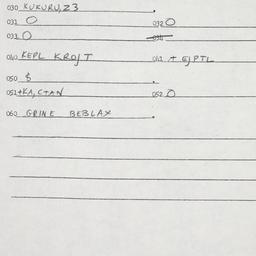 030 KUKURU, Z3
031 O 032 O
033 O
040 KEPL KROJT 041 + EJPTL
050 $
051 +KA, C+AN 052 O
060 GRINE BEBLAX